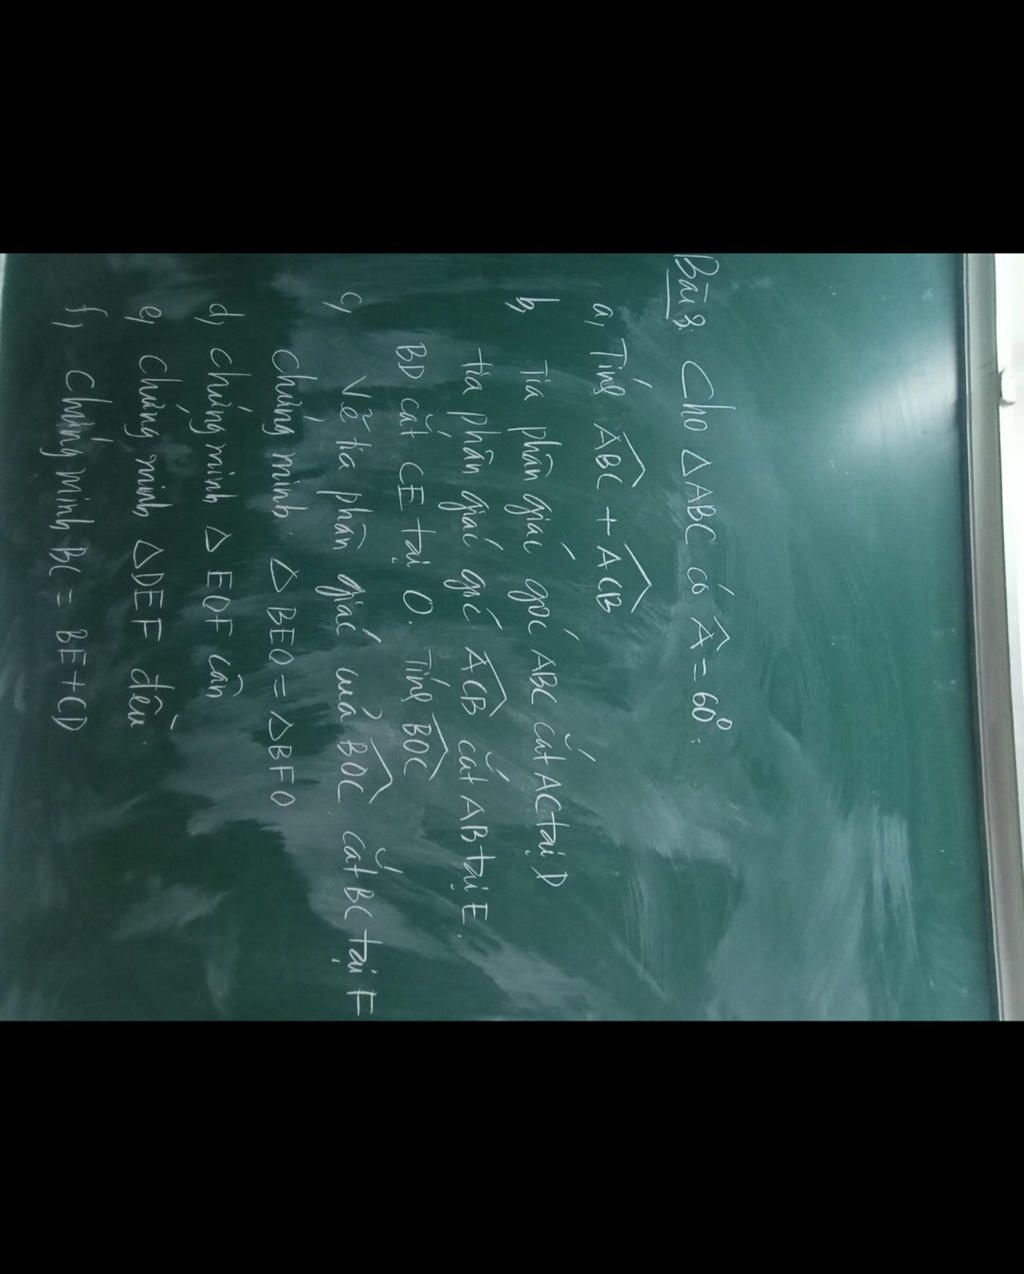 Bài 8: Cho △ABC có Â = 60⁰.
a, Tính ABC + ACB
b, Tia phân giác góc ABC cắt AC tại D
tia phân giác góc ACB cắt AB tại E.
BD cắt CE tại O. Tính BOC
c, Vẽ tia phân giác của BOC cắt BC tại F
Chứng minh. △BEO = △BFO
d, chứng minh △EOF cân
e, chứng minh △DEF đều.
f, Chứng minh BC = BE + CD